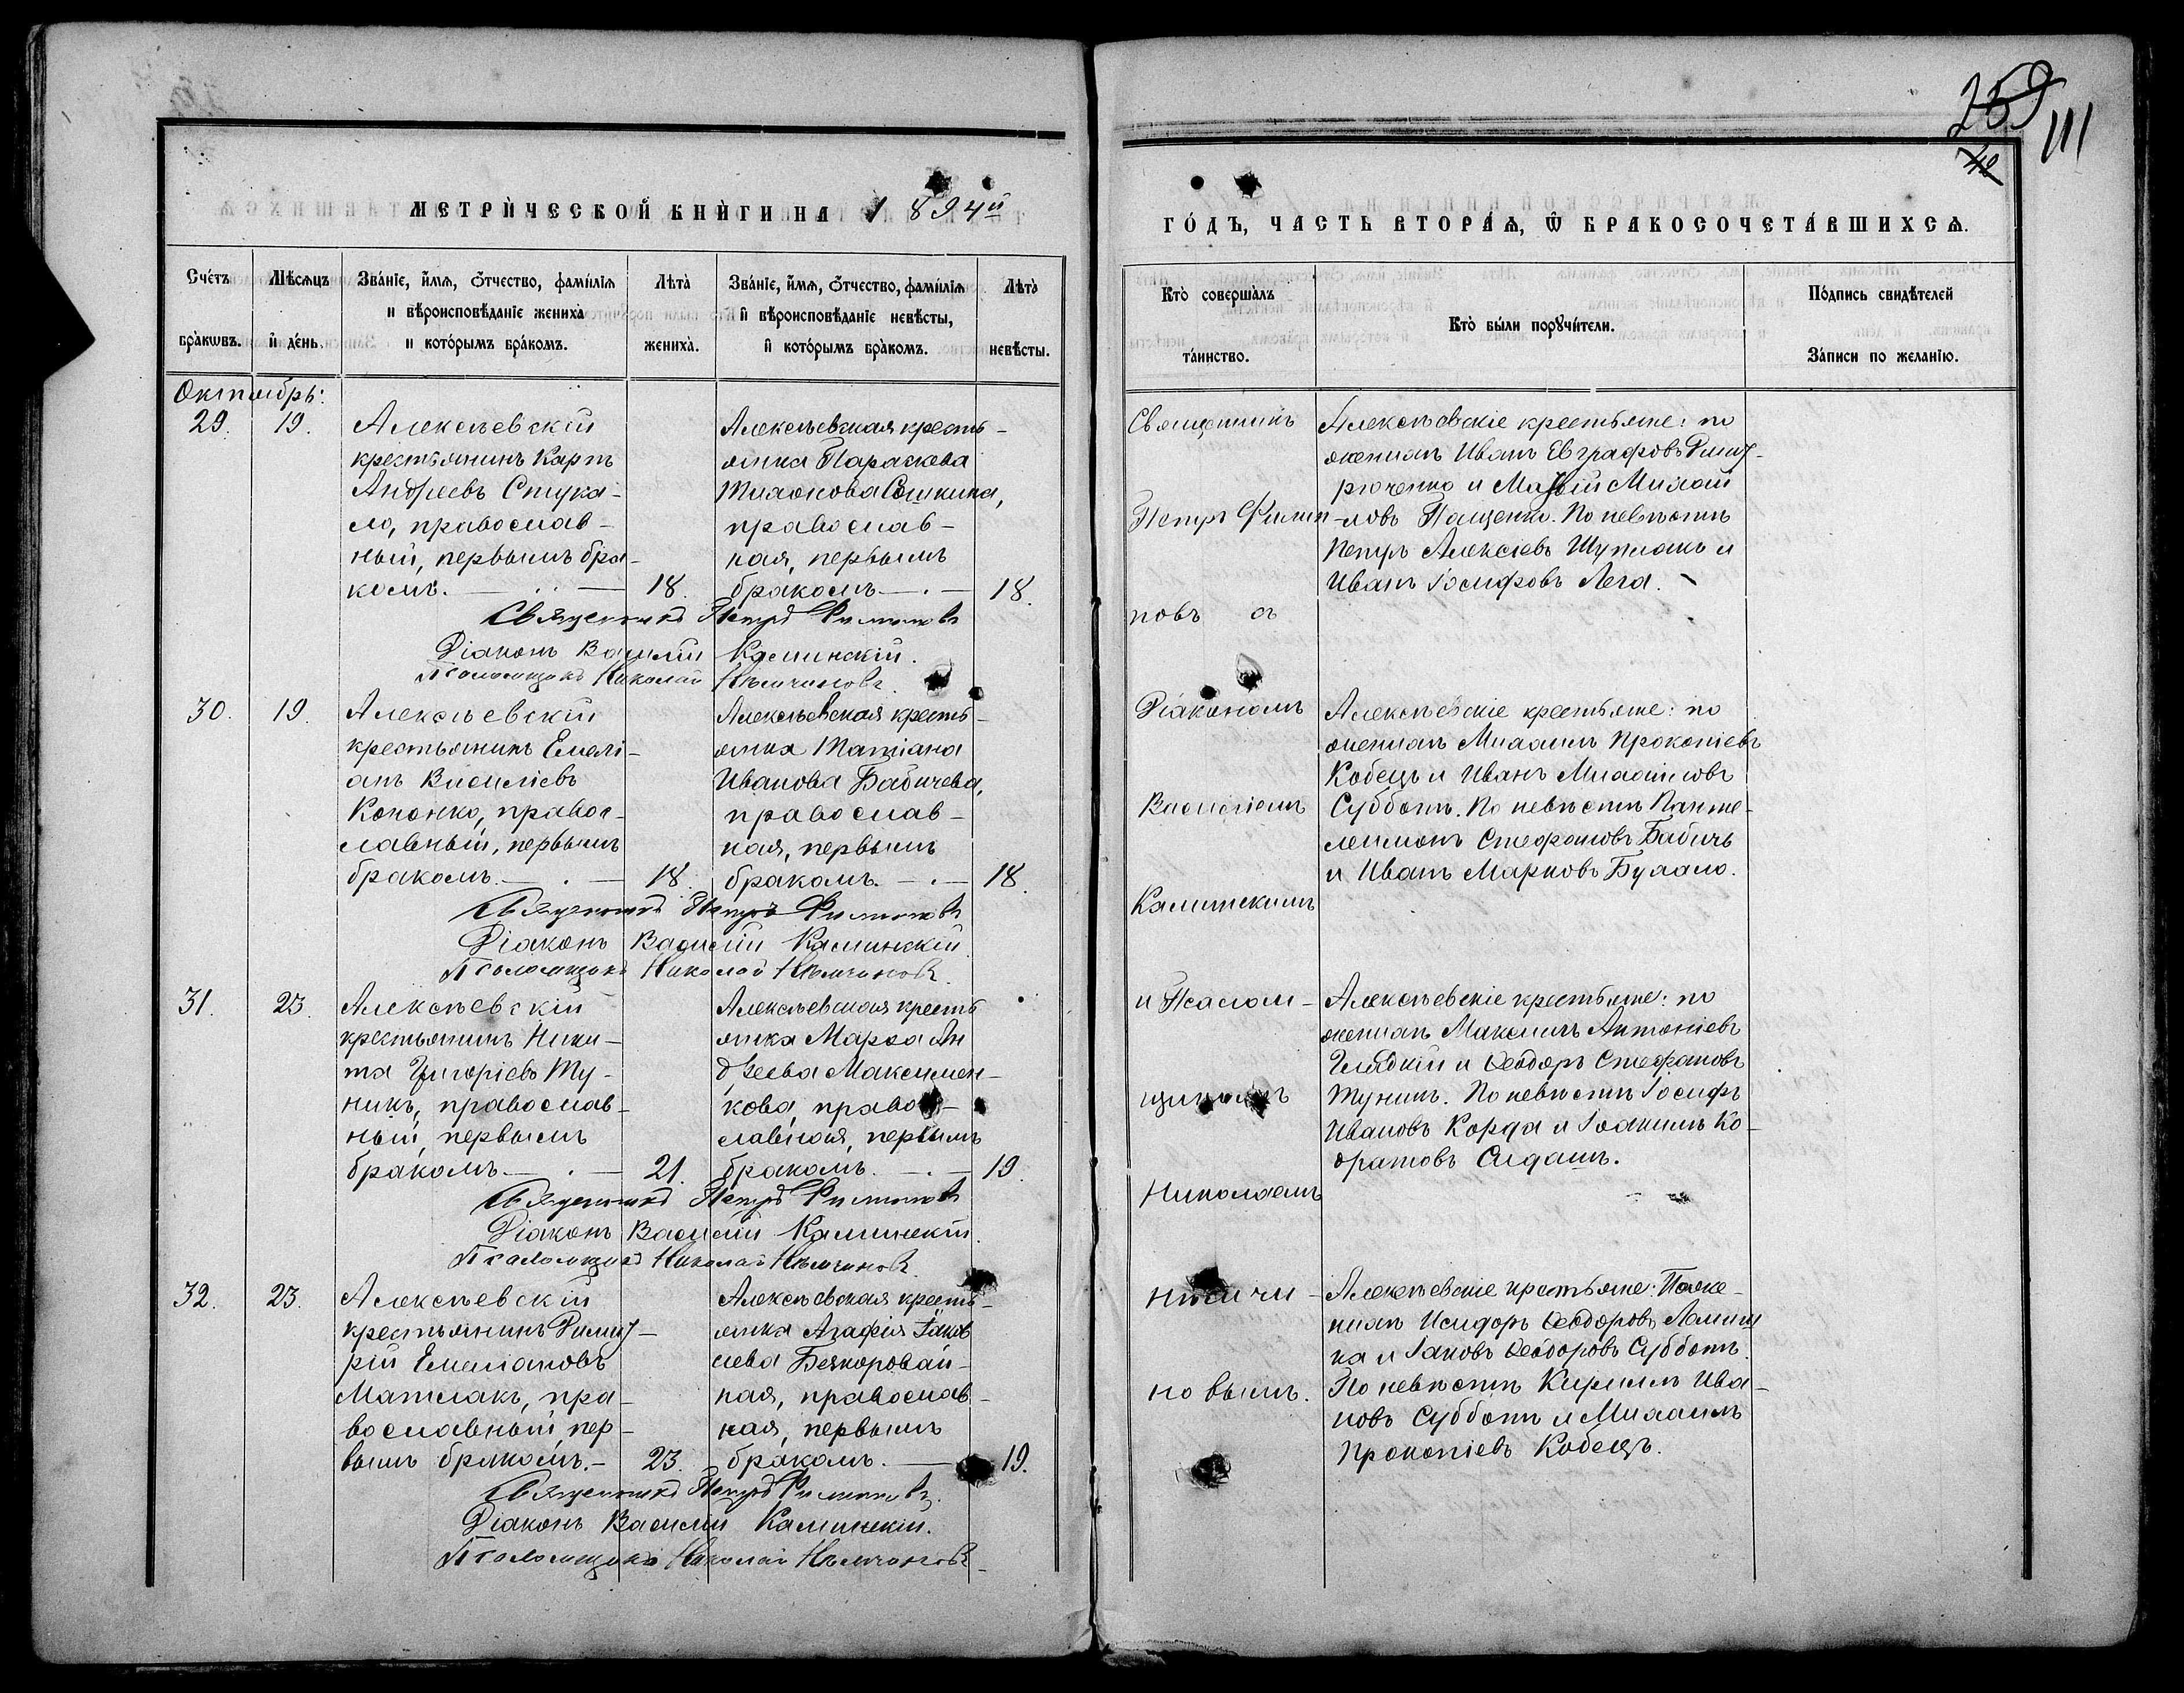 259
111
42
МЕТРИ́ЧЕСКОЙ КНИ́ГИ НА 1894й
ГО́ДЪ, ЧАСТЬ ВТОРА́Ѧ, Ѿ БРАКОСОЧЕТА́ВШИХСѦ.
Сче́тъ бра́кѡвъ.
Мѣ́сѧцъ и҆ де́нь.
Зва́нїе, и҆́мѧ, ѻ҆́тчество, фамилїѧ
и вѣроисповѣ́данїе жениха̀
и кото́рымъ бра́комъ.
Лѣ́та жениха̀.
Зва́нїе, и҆́мѧ, ѻ҆́тчество, фамилїѧ
и҆ вѣроисповѣ́данїе невѣ́сты,
и҆ кото́рымъ бра́комъ.
Лѣ́та невѣ́сты.
Кто̀ соверша́лъ
та́инство.
Кто̀ бы́ли порꙋчи́тели.
По́дпись свидѣ́телей
За́писи по жела́нїю.
Октоибрь:
29. 19.
Алексѣевскій
крестьянинъ Карпъ
Андреевъ Стука-
ло, православ-
ный, первымъ бра-
комъ. 18.
Алексѣевская кресть-
янка Параскева
Тихонова Сошкина,
православ-
ная, первымъ
бракомъ 18.
Священникъ Петръ Филиповъ
Діаконъ Василій Калминскій.
Псаломщикъ Николай Нѣмчиновъ.
30. 19.
Алексѣевскій
крестьянинъ Емелі-
анъ Василіевъ
Кононко, правос-
лавный, первымъ
бракомъ. 18.
Алексѣевская кресть-
янка Татіана
Иванова Бабичева,
православ-
ная, первымъ
бракомъ. 18.
Священникъ Петръ Филиповъ
Діаконъ Василій Калминскій
Псаломщикъ Николай Нѣмчиновъ.
31. 23.
Алексѣевскій
крестьянинъ Ники-
та Григоріевъ Ту-
никъ, православ-
ный, первымъ
бракомъ. 21.
Алексѣевская кресть
янка Марѳа Ан
дреева Максимен-
кова, право-
славная, первымъ
бракомъ. 19
Священникъ Петръ Филиповъ
Діаконъ Василій Калминскій.
Псаломщикъ Николай Нѣмчиновъ.
32. 23.
Алексѣевскій
крестьянинъ Димит-
рій Емеліановъ
Матлакъ, пра-
вославный, пер-
вымъ бракомъ. 23.
Алексѣевская кресть-
янка Агафія Іаков
лева Безкоровай-
ная, православ-
ная, первымъ
бракомъ. 19.
Священникъ Петръ Филиповъ.
Діаконъ Василій Калминскій.
Псаломщикъ Николай Нѣмчиновъ
Священникъ
Петръ Филип-
повъ съ
Діакономъ
Василіемъ
Калминскимъ
и Псалом-
щикомъ
Николаемъ
Нѣмчи-
новымъ.
Алексѣевскіе крестьяне: по
женихѣ Иванъ Евграфовъ Димит-
рюченко и Матвій Михаи
ловъ Пащенко. По невѣстѣ
Петръ Алексіевъ Шуплакъ и
Иванъ Іосифовъ Лега.
Алексѣевскіе крестьяне: по
женихѣ Михаилъ Прокопіевъ
Кобецъ и Иванъ Михаиловъ
Субботъ. По невѣстѣ Панте-
леимонъ Стефановъ Бабичъ
и Иванъ Марковъ Бухало.
Алексѣевскіе крестьяне: по
женихѣ Максимъ Антоніевъ
Гладкій и Ѳеодоръ Стефановъ
Туникъ. По невѣстѣ Іосифъ
Ивановъ Корда и Іоакимъ Ко-
дратовъ Сидашъ.
Алексѣевскіе крестьяне: По же-
нихѣ Исидоръ Ѳеодоровъ
ка и Іаковъ Ѳеодоровъ Субботъ.
По невѣстѣ Кириллъ Ива-
новъ Субботъ и Михаилъ
Прокопіевъ Кобецъ.